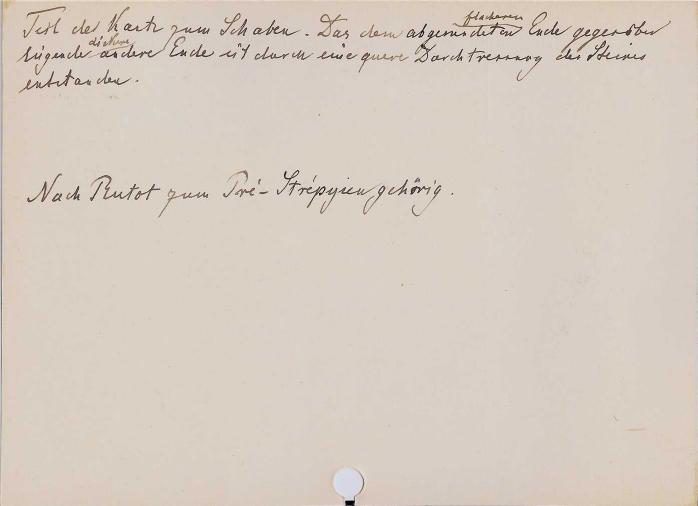 Teil der Kante zum Schaben. Das dem abgerundeten flacheren Ende gegenüber
liegende dickere andere Ende ist durch eine quere Durchtrennung des Steines
entstanden.
Nach Rutot zum Pré-Strépyien gehörig.